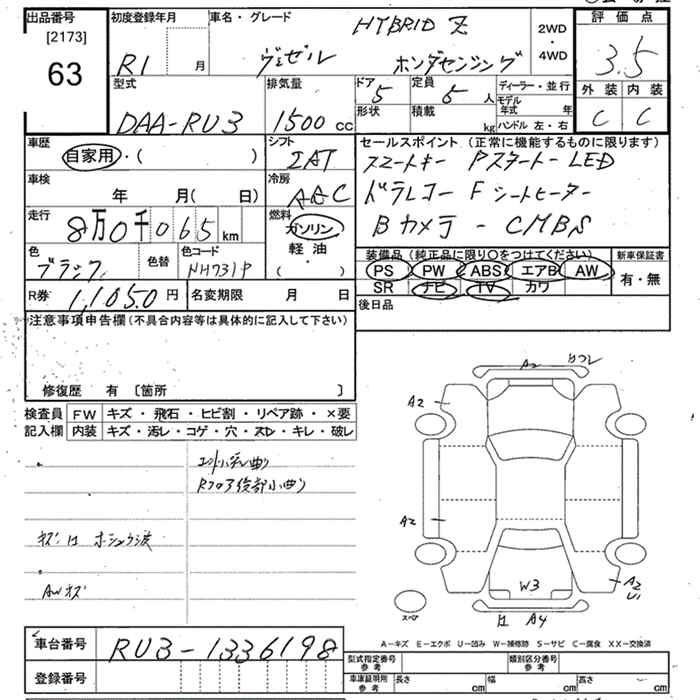 出品番号
[2173]
63
初度登録年月
R1 月
車名・グレード
HYBRID Z
ヴェゼル ホンダセンシング
2WD
・
4WD
評価点
3.5
外装 内装
C C
型式
DAA-RU3
排気量
1500 cc
ドア 5
形状
定員 5 人
積載 kg
ディーラー・並行
モデル年式 年
ハンドル 左・右
車歴
自家用・( )
シフト
IAT
セールスポイント (正常に機能するものに限ります)
スマートキー Pスタート- LED
ドラレコー Fシートヒーター
Bカメラ - CMBS
車検
年 月( 日)
冷房
AAC
走行
8万0千065 km
燃料
ガソリン
軽油
( ・ )
色
ブラック
色替
色コード
NH731P
装備品 (純正品に限り〇をつけてください)
PS PW ABS エアB AW
SR ナビ TV カワ
新車保証書
有・無
R券 11,050 円
名変期限 月 日
後日品
注意事項申告欄 (不具合内容等は具体的に記入して下さい)
修復歴 有 [箇所 ]
検査員記入欄
FW キズ・飛石・ヒビ割・リペア跡・×要
内装 キズ・汚レ・コゲ・穴・スレ・キレ・破レ
Rフロア後部小曲り
AWキズ
A2
A2
A2
W3
A2
U1
A4
スペア
A-キズ E-エクボ U-凹み W-補修跡 S-サビ C-腐食 XX-交換済
車台番号
RU3-1336198
登録番号
型式指定番号参考
類別区分番号参考
車庫証明用参考
長さ cm 幅 cm 高さ cm